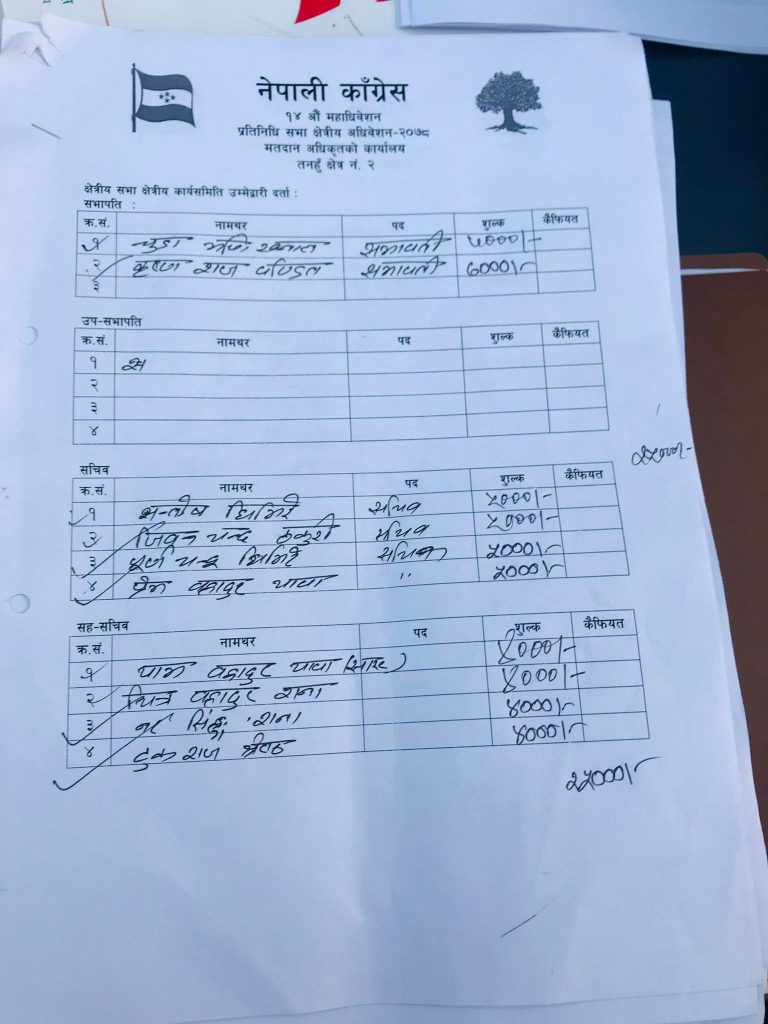 नेपाली काँग्रेस
१४ औं महाधिवेशन
प्रतिनिधि सभा क्षेत्रीय अधिवेशन-२०७८
मतदान अधिकृतको कार्यालय
तनहुँ क्षेत्र नं. २
क्षेत्रीय सभा क्षेत्रीय कार्यसमिति उम्मेद्वारी दर्ता :
सभापति :
क्र.सं. नामथर पद शुल्क कैफियत
१ चुडा मणि खनाल सभापती ७०००/-
२ कृष्ण राज पण्डित सभापती ७०००/-
३
उप-सभापति
क्र.सं. नामथर पद शुल्क कैफियत
१ स
२
३
४
सचिव
क्र.सं. नामथर पद शुल्क कैफियत
१ सन्तोष घिमिरे सचिव ५०००/-
२ जिवन चन्द्र ठकुरी सचिव ५०००/-
३ चन्द्र घिमिरे सचिव ५०००/-
४ प्रेम बहादुर थापा " ५०००/-
सह-सचिव
क्र.सं. नामथर पद शुल्क कैफियत
१ याम बहादुर थापा ४०००/-
२ चित्र बहादुर राना ४०००/-
३ सिंह राना ४०००/-
४ टुक राज श्रेष्ठ ४०००/-